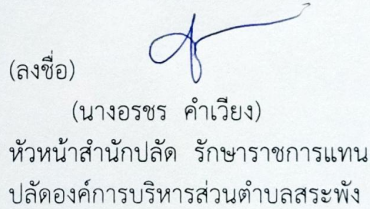 (ลงชื่อ)
(นางอรชร คำเวียง)
หัวหน้าสำนักปลัด รักษาราชการแทน
ปลัดองค์การบริหารส่วนตำบลสระพัง